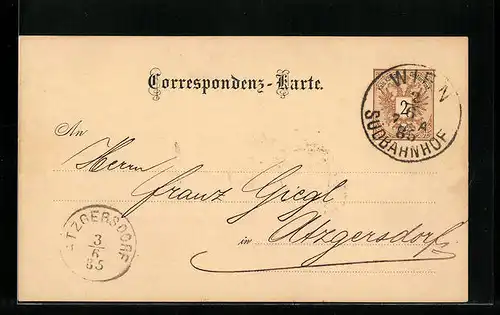 Correspondenz-Karte.
WIEN
2
6
85
SÜDBAHNHOF
An
Herrn
Franz Giegl
in Atzgersdorf
ATZGERSDORF
3
6
85